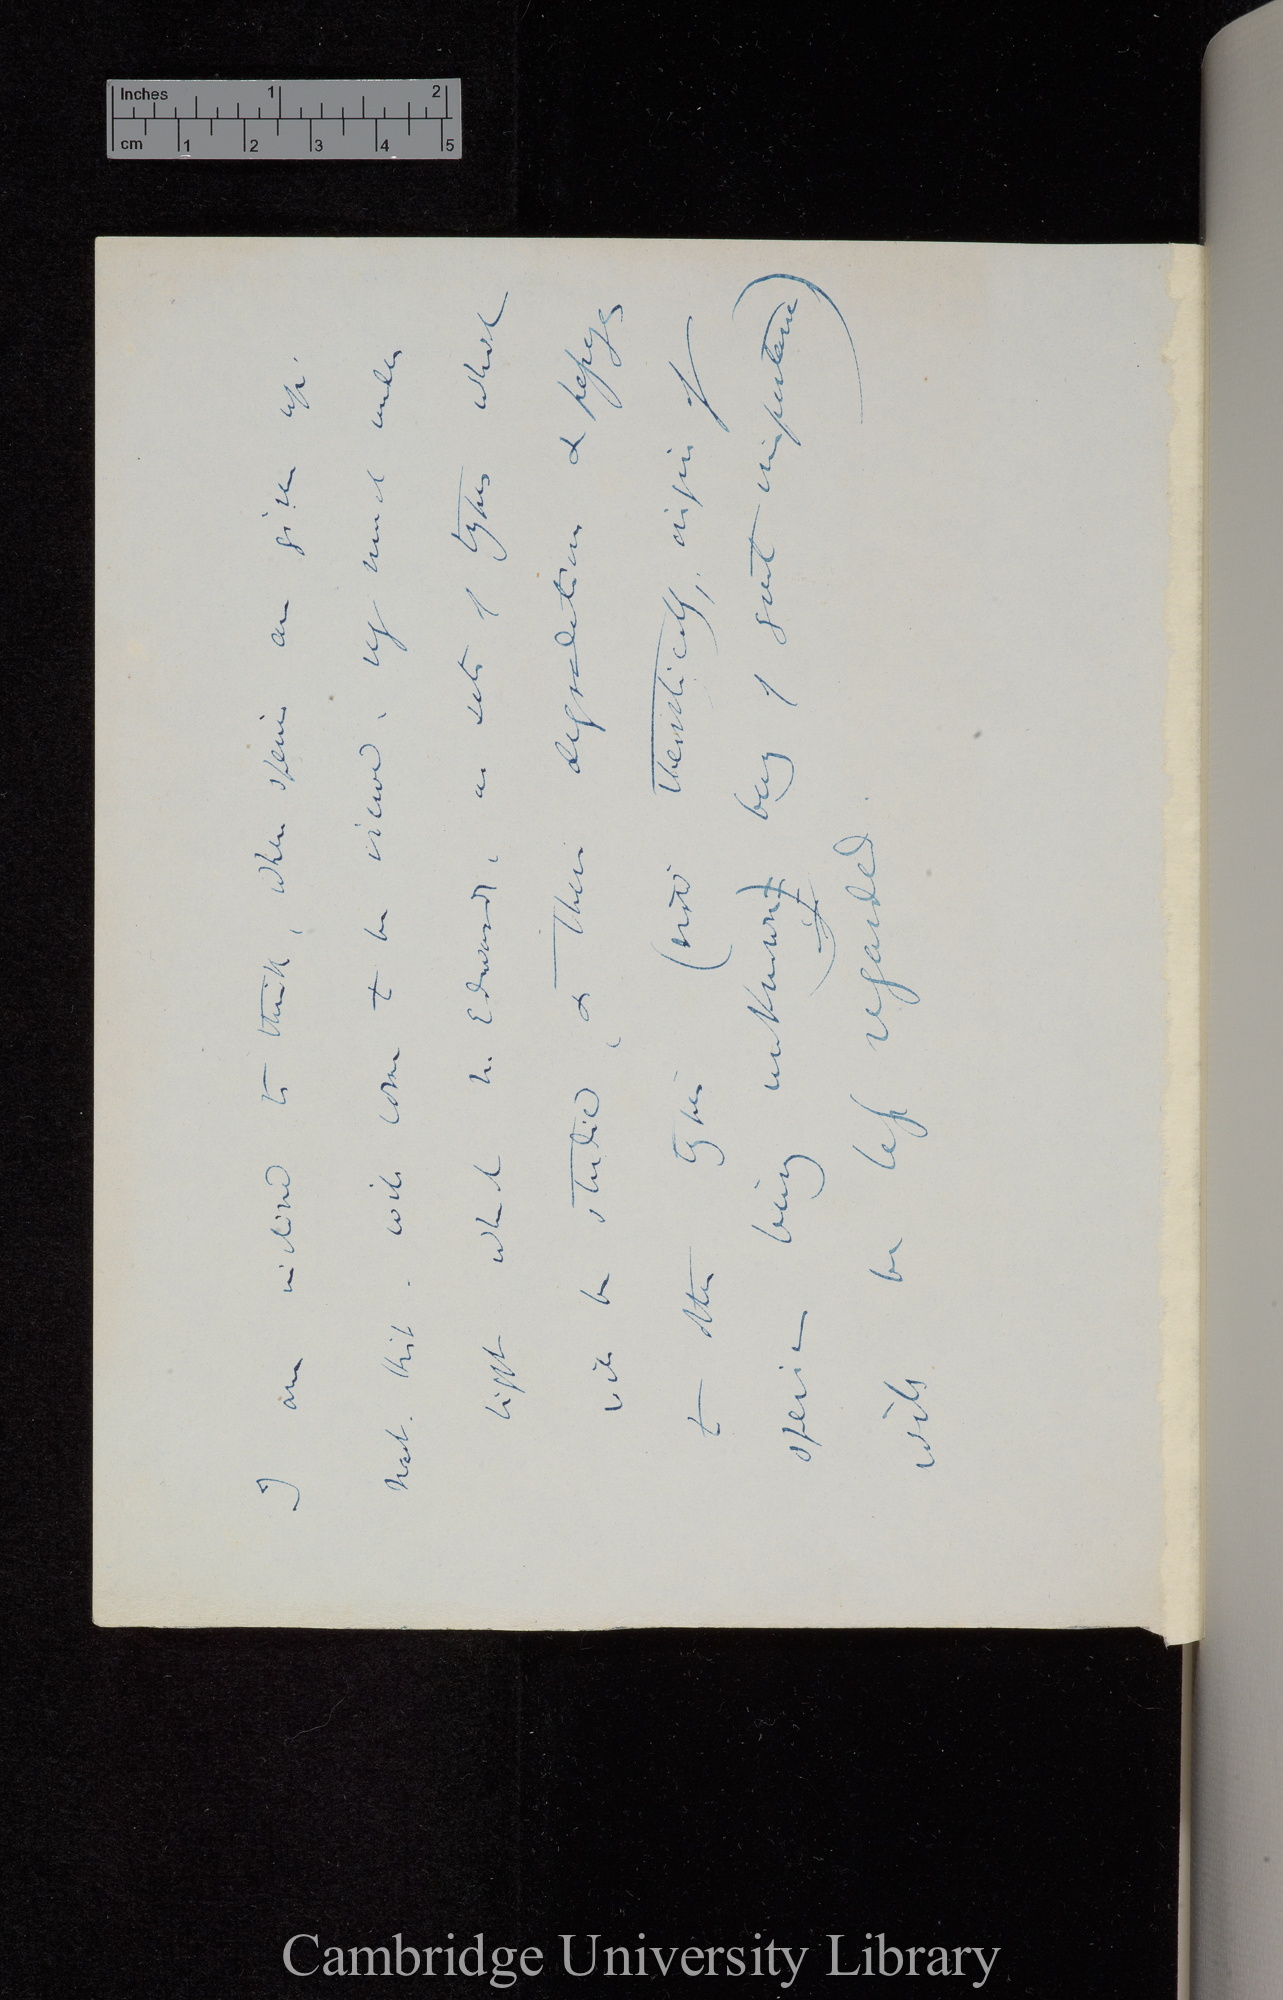 Inches 1 2
cm 1 2 3 4 5
I am inclined to think, when species are given up
that. this. will come to be viewed, very much under
light what M. Edwards, as sets of types which
will be studied, & their degradation & passages
to other types (now theoretically, origin of
species being unknown) being of great importance)
will be less regarded.
Cambridge University Library